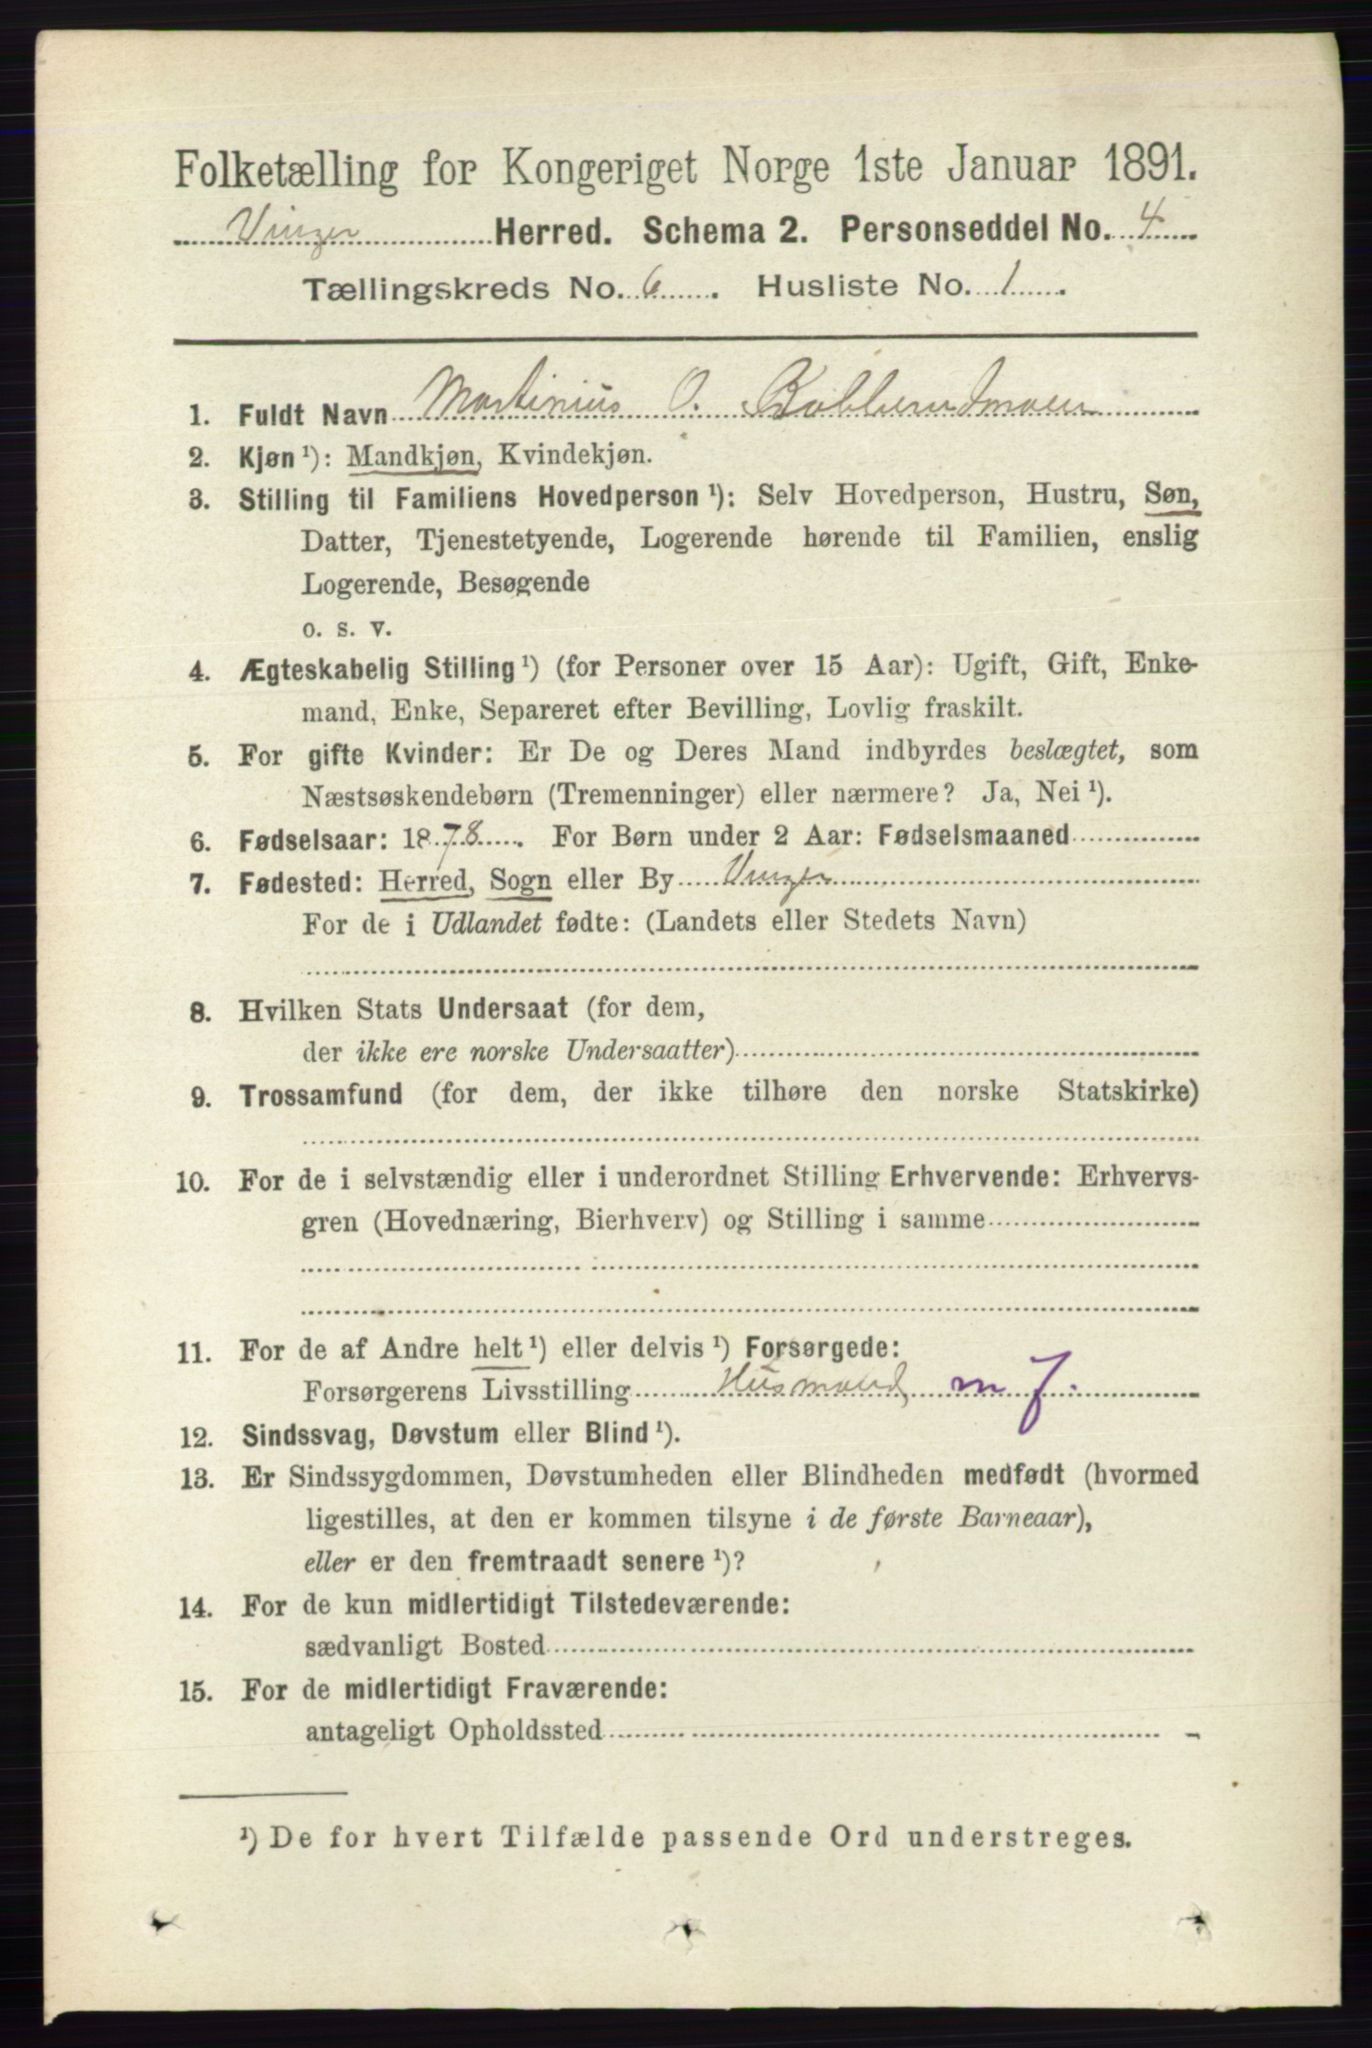 Folketælling for Kongeriget Norge 1ste Januar 1891.
Vinger Herred. Schema 2. Personseddel No. 4
Tællingskreds No. 6. Husliste No. 1.
1. Fuldt Navn Martinius O.
2. Kjøn ¹): Mandkjøn, Kvindekjøn.
3. Stilling til Familiens Hovedperson ¹): Selv Hovedperson, Hustru, Søn,
Datter, Tjenestetyende, Logerende hørende til Familien, enslig
Logerende, Besøgende
o. s. v.
4. Ægteskabelig Stilling ¹) (for Personer over 15 Aar): Ugift, Gift, Enke-
mand, Enke, Separeret efter Bevilling, Lovlig fraskilt.
5. For gifte Kvinder: Er De og Deres Mand indbyrdes beslægtet, som
Næstsøskendebørn (Tremenninger) eller nærmere? Ja, Nei ¹).
6. Fødselsaar: 1878. For Børn under 2 Aar: Fødselsmaaned
7. Fødested: Herred, Sogn eller By Vinger
For de i Udlandet fødte: (Landets eller Stedets Navn)
8. Hvilken Stats Undersaat (for dem,
der ikke ere norske Undersaatter)
9. Trossamfund (for dem, der ikke tilhøre den norske Statskirke)
10. For de i selvstændig eller i underordnet Stilling Erhvervende: Erhvervs-
gren (Hovednæring, Bierhverv) og Stilling i samme
11. For de af Andre helt ¹) eller delvis ¹) Forsørgede:
Forsørgerens Livsstilling Husmand m J.
12. Sindssvag, Døvstum eller Blind ¹).
13. Er Sindssygdommen, Døvstumheden eller Blindheden medfødt (hvormed
ligestilles, at den er kommen tilsyne i de første Barneaar),
eller er den fremtraadt senere ¹)?
14. For de kun midlertidigt Tilstedeværende:
sædvanligt Bosted
15. For de midlertidigt Fraværende:
antageligt Opholdssted
¹) De for hvert Tilfælde passende Ord understreges.